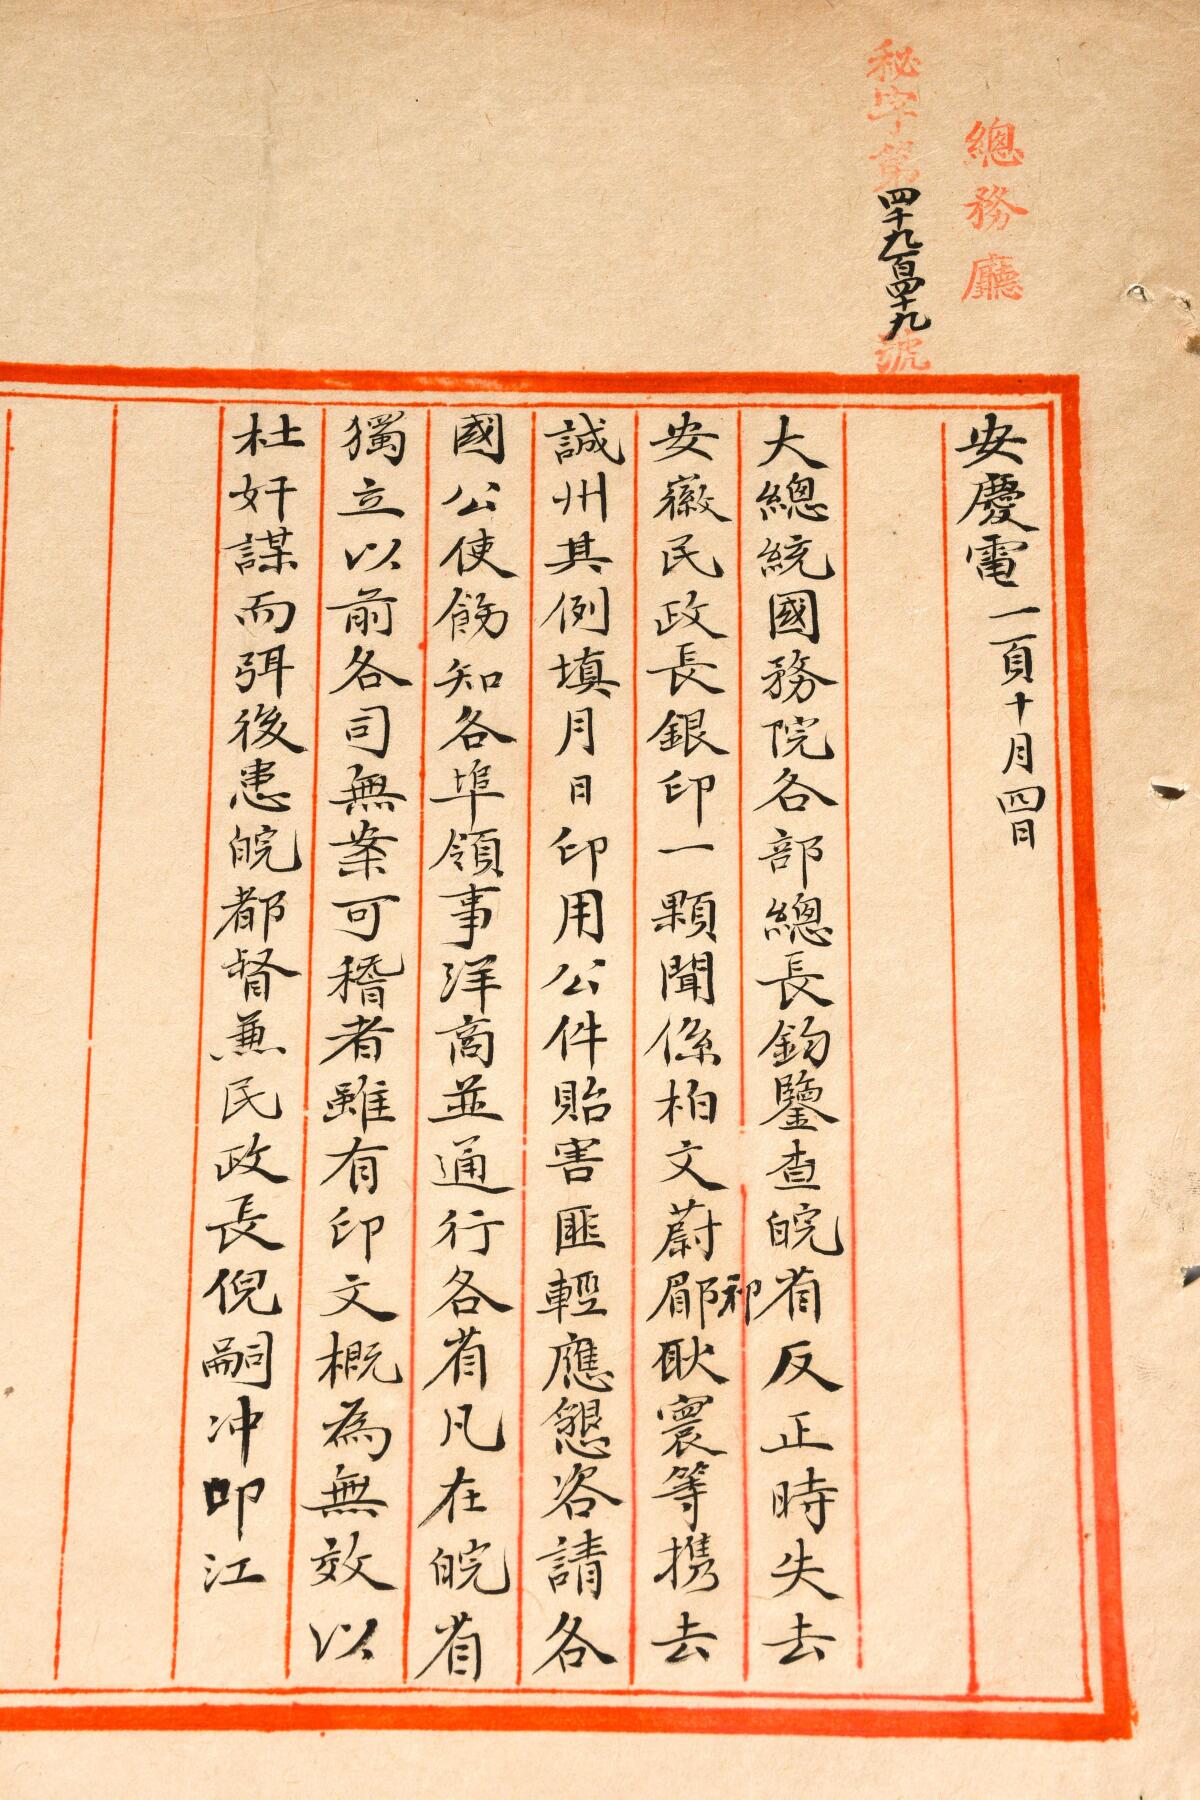 總務廳
秘字第四千九百四十九號
安慶電一頁十月四日
大總統國務院各部總長鈞鑒查皖省反正時失去
安徽民政長銀印一顆聞係柏文蔚祁郿耿寰等携去
誠州其例填月日印用公件貽害匪輕應懇咨請各
國公使飭知各埠領事洋商並通行各省凡在皖省
獨立以前各司無案可稽者雖有印文概為無效以
杜奸謀而弭後患皖都督兼民政長倪嗣冲叩江